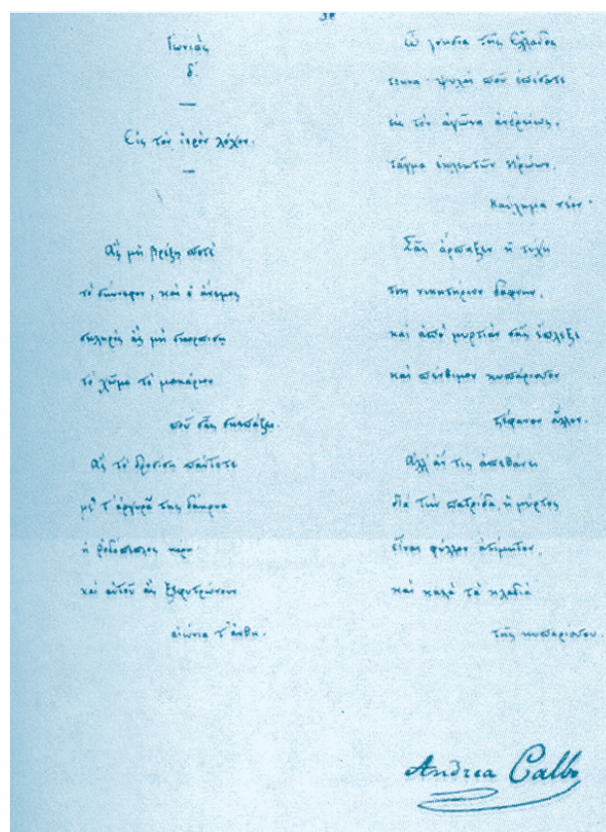 δ΄.
Εἰς τὸν ἱερὸν λόχον.
Ἂς μὴ βρέξῃ ποτὲ
τὸ σύννεφον, καὶ ὁ ἄνεμος
σκληρὸς ἂς μὴ σκορπίσῃ
τὸ χῶμα τὸ μακάριον
ποῦ σᾶς σκεπάζει.
Ἂς τὸ δροσίσῃ πάντοτε
μὲ τ' ἀργυρᾶ της δάκρυα
ἡ ῥοδόπεπλος κόρη
καὶ αὐτοῦ ἂς ξεφυτρώνουν
αἰώνια τ' ἄνθη.
Ὦ γνήσια τῆς Ἑλλάδος
τέκνα· ψυχαὶ ποῦ ἐπέσατε
εἰς τὸν ἀγῶνα ἀνδρείως,
τάγμα ἐκλεκτῶν Ἡρώων,
καύχημα νέον·
Σᾶς ἅρπαξεν ἡ τύχη
τὴν νικητήριον δάφνην,
καὶ ἀπὸ μυρτιὰν σᾶς ἔπλεξε
καὶ πένθιμον κυπάρισσον
στέφανον ἄλλον.
Ἀλλ' ἄν τις ἀπεθάνει
διὰ τὴν πατρίδα, ἡ μύρτος
εἶναι φύλλον ἀτίμητον,
καὶ καλὰ τὰ κλαδιὰ
τῆς κυπαρίσσου.
Andrea Calbo